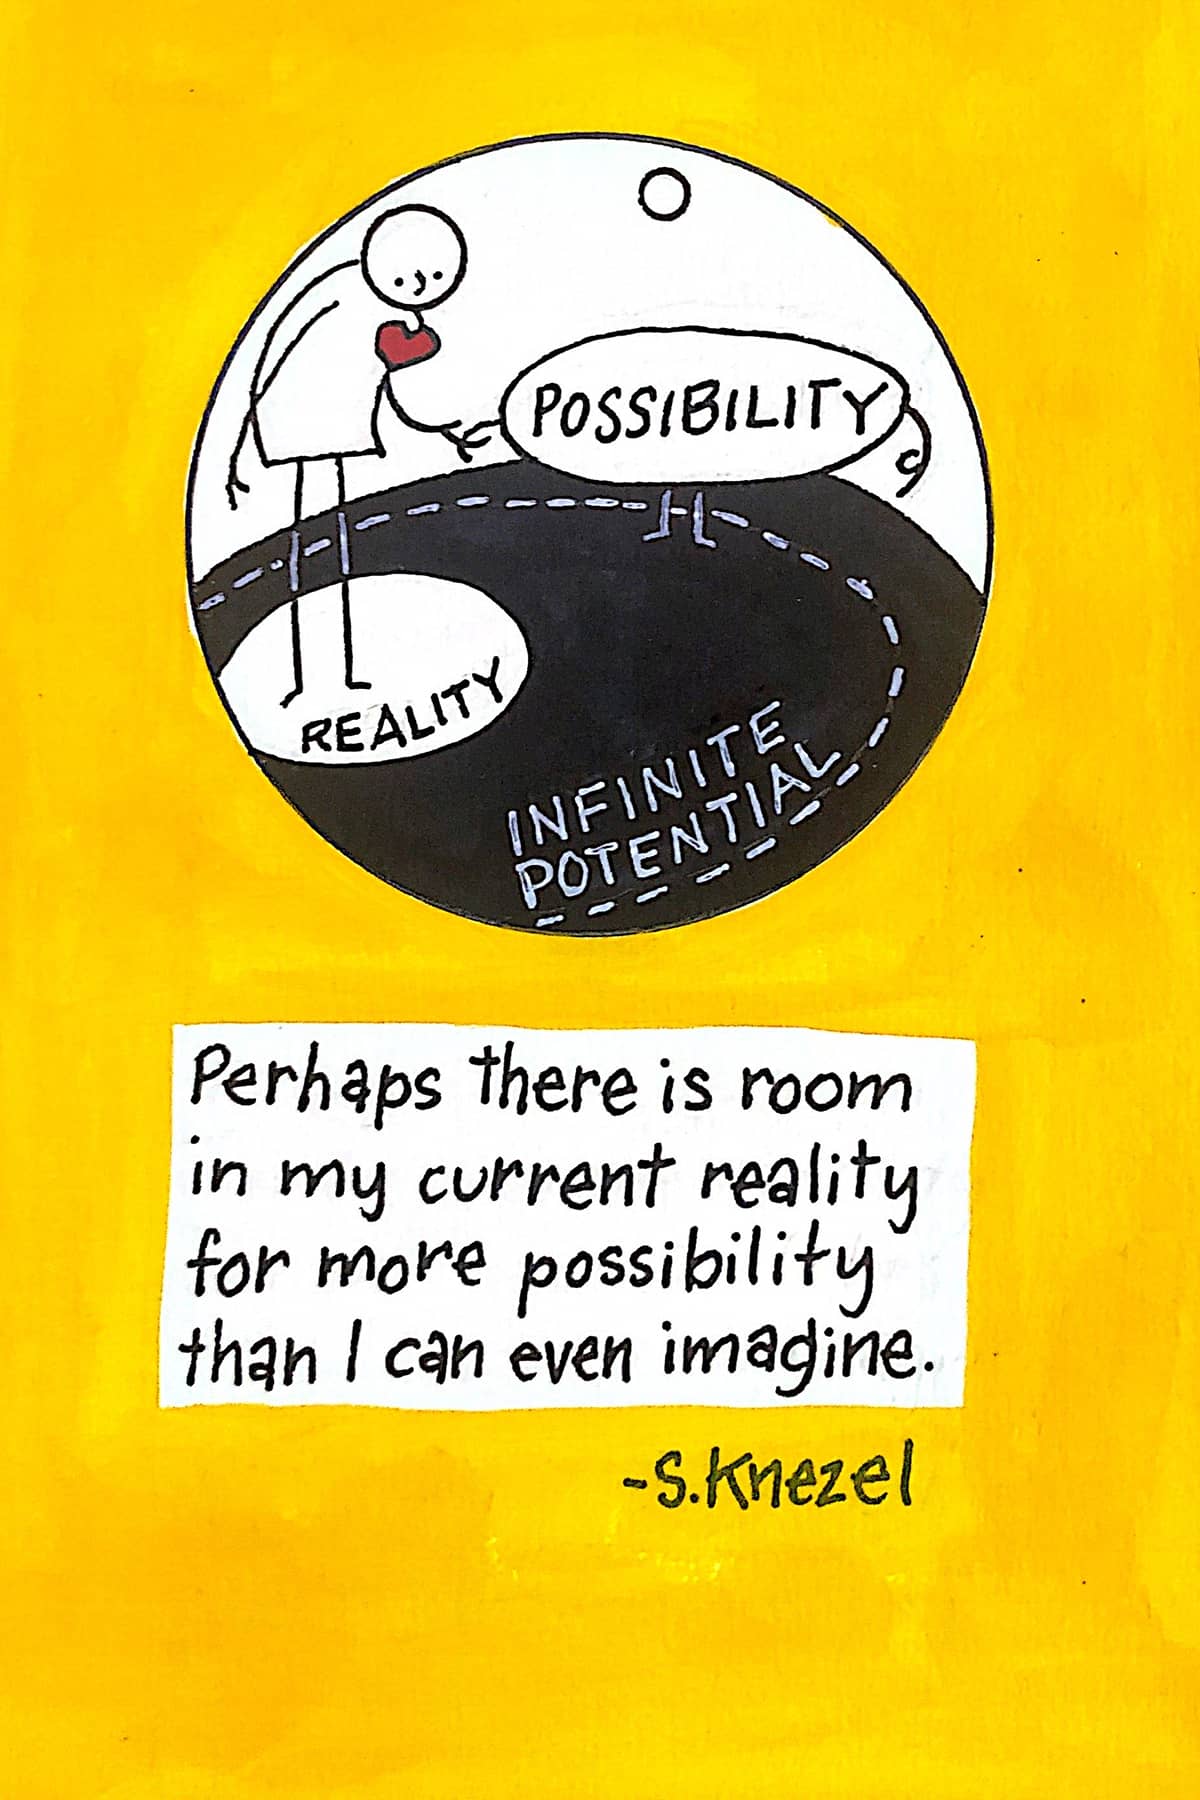 POSSIBILITY
REALITY
INFINITE
POTENTIAL
Perhaps there is room
in my current reality
for more possibility
than I can even imagine.
-S.Knezel